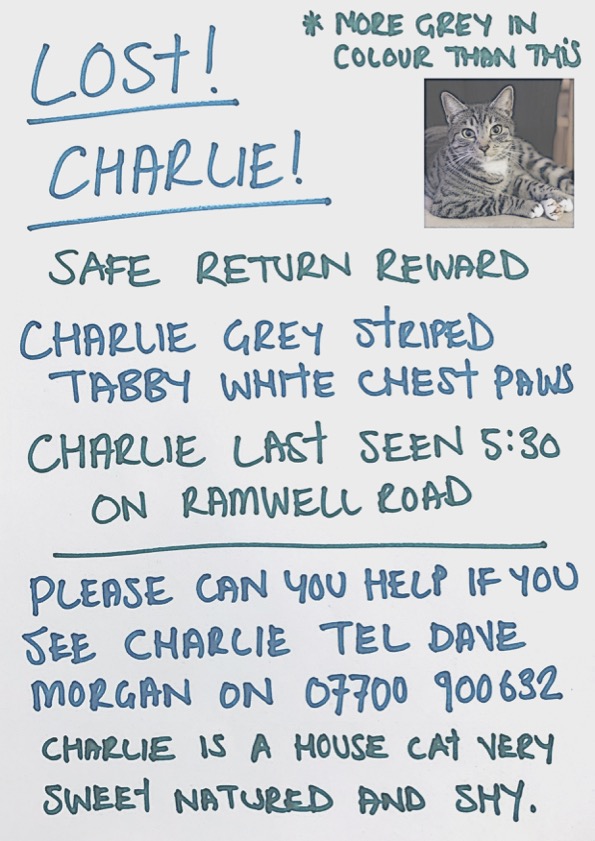 LOST!
* MORE GREY IN
COLOUR THAN THIS
CHARLIE!
SAFE RETURN REWARD
CHARLIE GREY STRIPED
TABBY WHITE CHEST PAWS
CHARLIE LAST SEEN 5:30
ON RAMWELL ROAD
PLEASE CAN YOU HELP IF YOU
SEE CHARLIE TEL DAVE
MORGAN ON 07700 900632
CHARLIE IS A HOUSE CAT VERY
SWEET NATURED AND SHY.